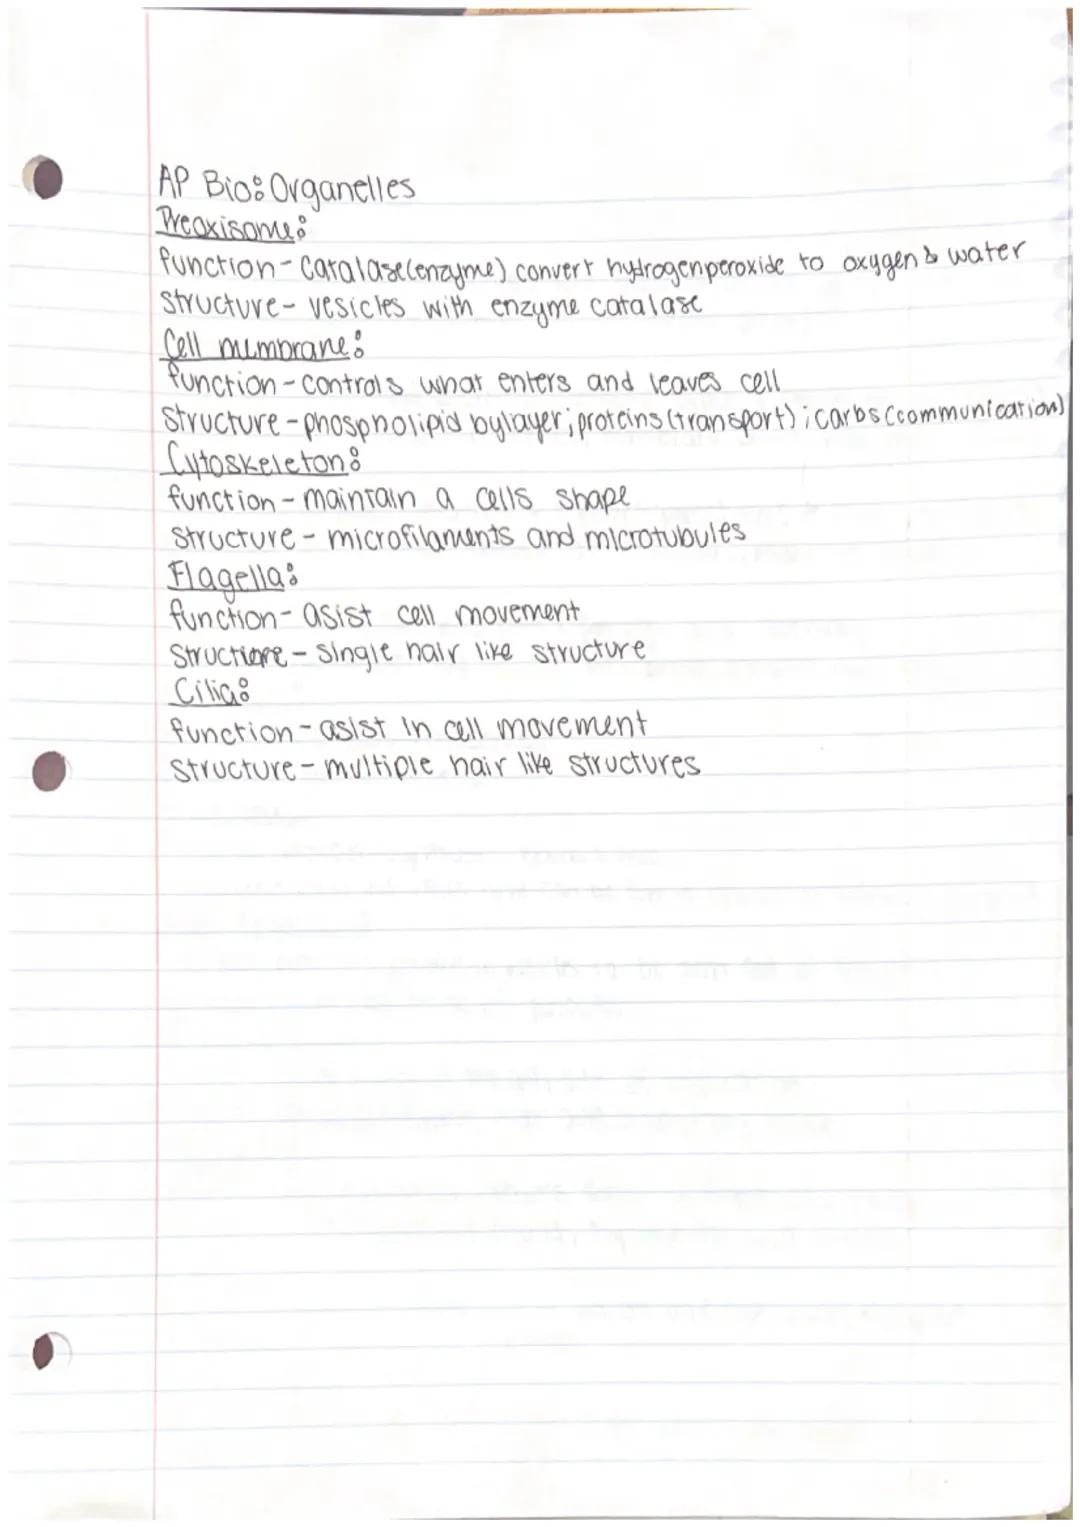 AP Bio: Organelles
Preoxisome:
function - Catalase(enzyme) convert hydrogenperoxide to oxygen & water
structure - vesicles with enzyme catalase
Cell membrane:
function - controls what enters and leaves cell
structure - phospholipid bylayer; proteins (transport); carbs (communication)
Cytoskeleton:
function - maintain a cells shape
structure - microfilaments and microtubules
Flagella:
function - asist cell movement
Structure - single hair like structure
Cilia:
function - asist in cell movement
structure - multiple hair like structures